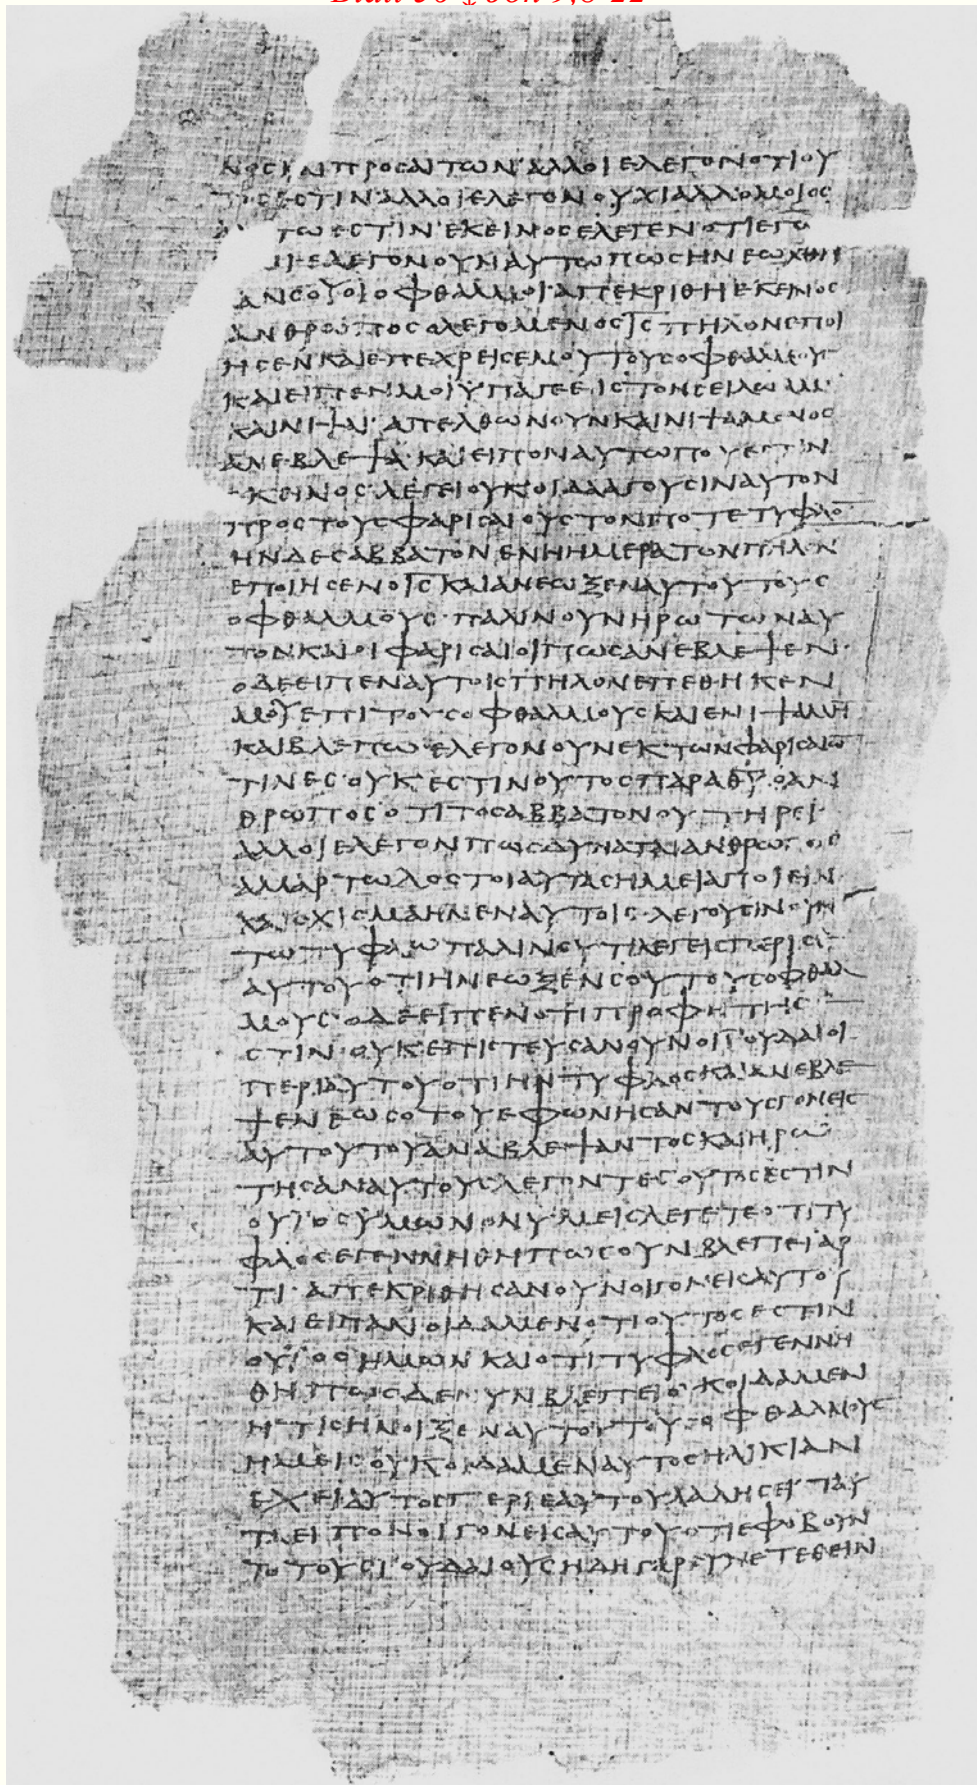 Joh 9,8-22
ΝΟΣ ΚΑΙ ΠΡΟΣΑΙΤΩΝ ΑΛΛΟΙ ΕΛΕΓΟΝ ΟΤΙ ΟΥ
ΤΟΣ ΕΣΤΙΝ ΑΛΛΟΙ ΕΛΕΓΟΝ ΟΥΧΙ ΑΛΛ ΟΜΟΙΟΣ
ΤΩ ΕΣΤΙΝ ΕΚΕΙΝΟΣ ΕΛΕΓΕΝ ΟΤΙ ΕΓΩ
ΕΛΕΓΟΝ ΟΥΝ ΑΥΤΩ ΠΩΣ ΗΝΕΩΧΘΗ
ΑΝ ΣΟΥ ΟΙ ΟΦΘΑΛΜΟΙ ΑΠΕΚΡΙΘΗ ΕΚΕΙΝΟΣ
ΑΝΘΡΩΠΟΣ Ο ΛΕΓΟΜΕΝΟΣ ΙΣ ΠΗΛΟΝ ΕΠΟΙ
ΗΣΕΝ ΚΑΙ ΕΠΕΧΡΕΙΣΕ ΜΟΥ ΤΟΥΣ ΟΦΘΑΛΜΟΥΣ
ΚΑΙ ΕΙΠΕΝ ΜΟΙ ΥΠΑΓΕ ΕΙΣ ΤΟΝ ΣΕΙΛΩΑΜ
ΚΑΙ ΝΙΨΑΙ ΑΠΕΛΘΩΝ ΟΥΝ ΚΑΙ ΝΙΨΑΜΕΝΟΣ
ΑΝΕΒΛΕΨΑ ΚΑΙ ΕΙΠΟΝ ΑΥΤΩ ΠΟΥ ΕΣΤΙΝ
ΕΚΕΙΝΟΣ ΛΕΓΕΙ ΟΥΚ ΟΙΔΑ ΑΓΟΥΣΙΝ ΑΥΤΟΝ
ΠΡΟΣ ΤΟΥΣ ΦΑΡΙΣΑΙΟΥΣ ΤΟΝ ΠΟΤΕ ΤΥΦΛΟ̅
ΗΝ ΔΕ ΣΑΒΒΑΤΟΝ ΕΝ Η ΗΜΕΡΑ ΤΟΝ ΠΗΛΟΝ
ΕΠΟΙΗΣΕΝ Ο ΙΣ ΚΑΙ ΑΝΕΩΞΕΝ ΑΥΤΟΥ ΤΟΥΣ
ΟΦΘΑΛΜΟΥΣ ΠΑΛΙΝ ΟΥΝ ΗΡΩΤΩΝ ΑΥ
ΤΟΝ ΚΑΙ ΟΙ ΦΑΡΙΣΑΙΟΙ ΠΩΣ ΑΝΕΒΛΕΨΕΝ
Ο ΔΕ ΕΙΠΕΝ ΑΥΤΟΙΣ ΠΗΛΟΝ ΕΠΕΘΗΚΕΝ
ΜΟΥ ΕΠΙ ΤΟΥΣ ΟΦΘΑΛΜΟΥΣ ΚΑΙ ΕΝΙΨΑΜΗ
ΚΑΙ ΒΛΕΠΩ ΕΛΕΓΟΝ ΟΥΝ ΕΚ ΤΩΝ ΦΑΡΙΣΑΙΩ̅
ΤΙΝΕΣ ΟΥΚ ΕΣΤΙΝ ΟΥΤΟΣ ΠΑΡΑ ΘΥ Ο ΑΝ
ΘΡΩΠΟΣ ΟΤΙ ΤΟ ΣΑΒΒΑΤΟΝ ΟΥ ΤΗΡΕΙ
ΑΛΛΟΙ ΕΛΕΓΟΝ ΠΩΣ ΔΥΝΑΤΑΙ ΑΝΘΡΩΠΟΣ
ΑΜΑΡΤΩΛΟΣ ΤΟΙΑΥΤΑ ΣΗΜΕΙΑ ΠΟΙΕΙΝ
ΚΑΙ ΣΧΙΣΜΑ ΗΝ ΕΝ ΑΥΤΟΙΣ ΛΕΓΟΥΣΙΝ ΟΥΝ
ΤΩ ΤΥΦΛΩ ΠΑΛΙΝ ΣΥ ΤΙ ΛΕΓΕΙΣ ΠΕΡΙ
ΑΥΤΟΥ ΟΤΙ ΗΝΕΩΞΕΝ ΣΟΥ ΤΟΥΣ ΟΦΘΑΛ
ΜΟΥΣ Ο ΔΕ ΕΙΠΕΝ ΟΤΙ ΠΡΟΦΗΤΗΣ Ε
ΣΤΙΝ ΟΥΚ ΕΠΙΣΤΕΥΣΑΝ ΟΥΝ ΟΙ ΙΟΥΔΑΙΟΙ
ΠΕΡΙ ΑΥΤΟΥ ΟΤΙ ΗΝ ΤΥΦΛΟΣ ΚΑΙ ΑΝΕΒΛΕ
ΨΕΝ ΕΩΣ ΟΤΟΥ ΕΦΩΝΗΣΑΝ ΤΟΥΣ ΓΟΝΕΙΣ
ΑΥΤΟΥ ΤΟΥ ΑΝΑΒΛΕΨΑΝΤΟΣ ΚΑΙ ΗΡΩ
ΤΗΣΑΝ ΑΥΤΟΥΣ ΛΕΓΟΝΤΕΣ ΟΥΤΟΣ ΕΣΤΙΝ
Ο ΥΙΟΣ ΥΜΩΝ ΟΝ ΥΜΕΙΣ ΛΕΓΕΤΕ ΟΤΙ ΤΥ
ΦΛΟΣ ΕΓΕΝΝΗΘΗ ΠΩΣ ΟΥΝ ΒΛΕΠΕΙ ΑΡ
ΤΙ ΑΠΕΚΡΙΘΗΣΑΝ ΟΥΝ ΟΙ ΓΟΝΕΙΣ ΑΥΤΟΥ
ΚΑΙ ΕΙΠΑΝ ΟΙΔΑΜΕΝ ΟΤΙ ΟΥΤΟΣ ΕΣΤΙΝ
Ο ΥΙΟΣ ΗΜΩΝ ΚΑΙ ΟΤΙ ΤΥΦΛΟΣ ΕΓΕΝΝΗ
ΘΗ ΠΩΣ ΔΕ ΝΥΝ ΒΛΕΠΕΙ ΟΥΚ ΟΙΔΑΜΕΝ
Η ΤΙΣ ΗΝΟΙΞΕΝ ΑΥΤΟΥ ΤΟΥΣ ΟΦΘΑΛΜΟΥΣ
ΗΜΕΙΣ ΟΥΚ ΟΙΔΑΜΕΝ ΑΥΤΟΣ ΗΛΙΚΙΑΝ
ΕΧΕΙ ΑΥΤΟΣ ΠΕΡΙ ΕΑΥΤΟΥ ΛΑΛΗΣΕΙ ΤΑΥ
ΤΑ ΕΙΠΟΝ ΟΙ ΓΟΝΕΙΣ ΑΥΤΟΥ ΟΤΙ ΕΦΟΒΟΥΝ
ΤΟ ΤΟΥΣ ΙΟΥΔΑΙΟΥΣ ΗΔΗ ΓΑΡ ΣΥΝΕΤΕΘΕΙΝ